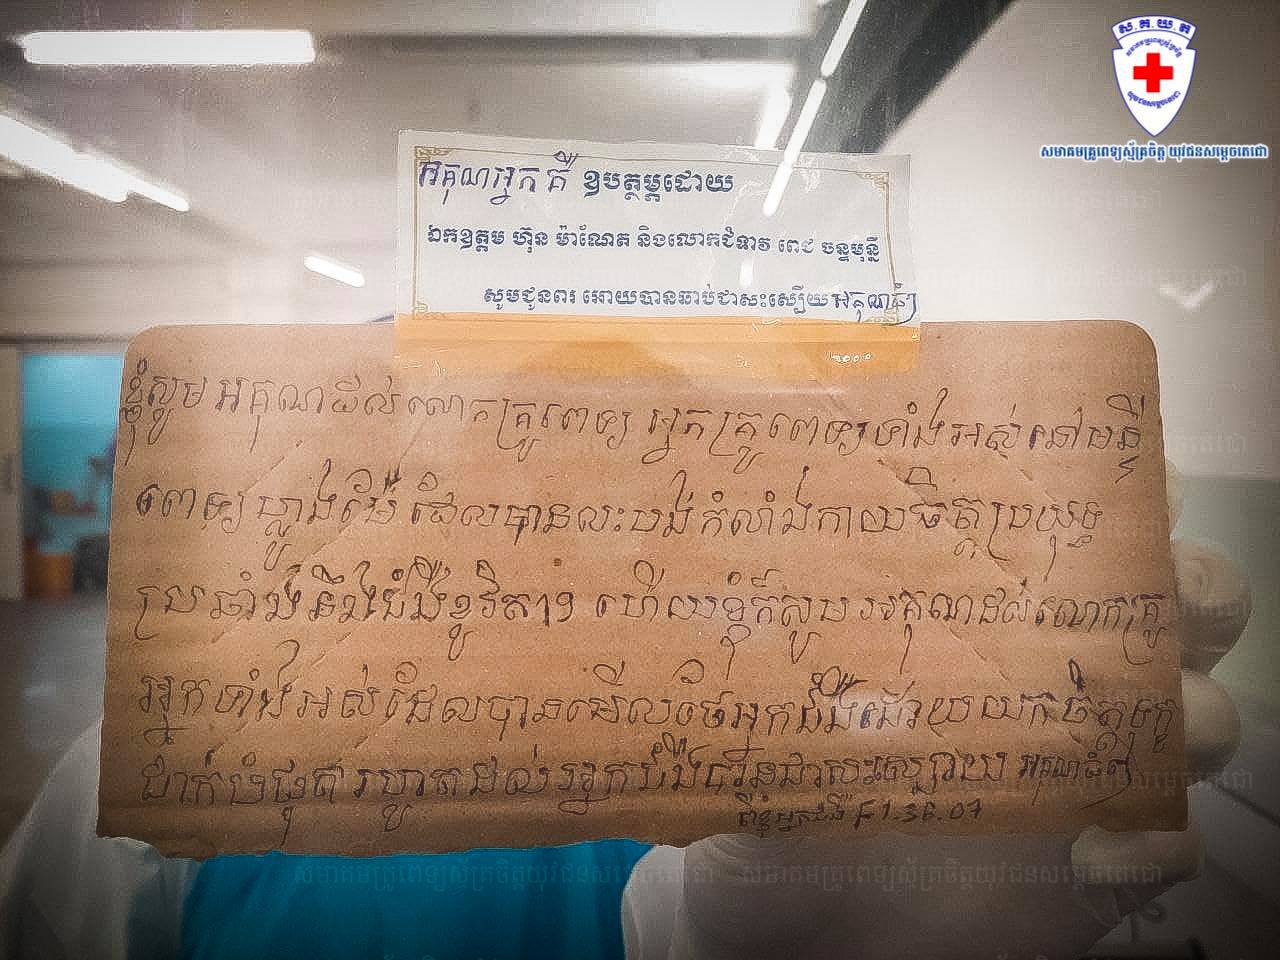 ស.គ.យ.ត
សមាគមគ្រូពេទ្យស្ម័គ្រចិត្ត យុវជនសម្តេចតេជោ
អគុណអ្នកគី ឧបត្ថម្ភដោយ
ឯកឧត្តម ហ៊ុន ម៉ាណែត និងលោកជំទាវ ពេជ ចន្ទមុន្នី
សូមជូនពរ អោយបានឆាប់ជាសះស្បើយ អគុណធំៗ
ខ្ញុំសូមអគុណដល់លោកគ្រូពេទ្យ អ្នកគ្រូពេទ្យទាំងអស់នៅមន្ទី
ពេទ្យ ដែលបានលះបង់កំលាំងកាយចិត្តប្រយុទ្ធ
ប្រឆាំងនឹងជំងឺខូវីត19 ហើយខ្ញុំក៏សូមអគុណដល់លោកគ្រូ
អ្នកទាំងអស់ដែលបានមើលថែអ្នកជំងឺដោយយកចិត្តទុក្ខ
ដាក់បំផុតរហូតដល់អ្នកជំងឺបានជាសះស្បោយ អគុណធំៗ
ពីខ្ញុំអ្នកជំងឺ F1.36.07